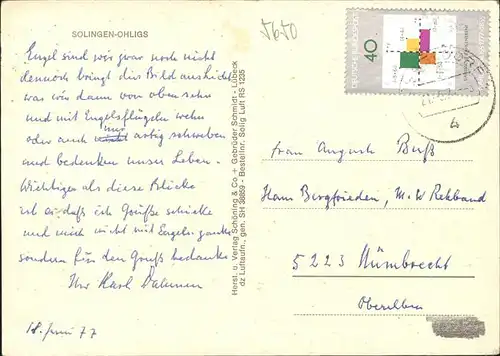 SOLINGEN-OHLIGS
5650
Engel sind wir zwar noch nicht
dennoch bringt dies Bild aus Sicht
was wir dann von oben sehn
und mit Engelsflügeln wehn
oder auch nur artig schweben
und bedenken unser Leben.
Wichtiger als diese Blicke
ist es daß ich Grüße schicke
und mich nicht mit Engeln zanke
sondern für den Gruß bedanke
Ihr Karl
18. Juni 77
Horst. u. Verlag Schöning & Co + Gebrüder Schmidt - Lübeck
dz Luftaufn., gen. SH 38659 - Bestellnr. Solig Luft RS 1235
DEUTSCHE BUNDESPOST
40
Frau Auguste Buß
Haus Bergfrieden, M. W
5223 Nümbrecht
Oberelben